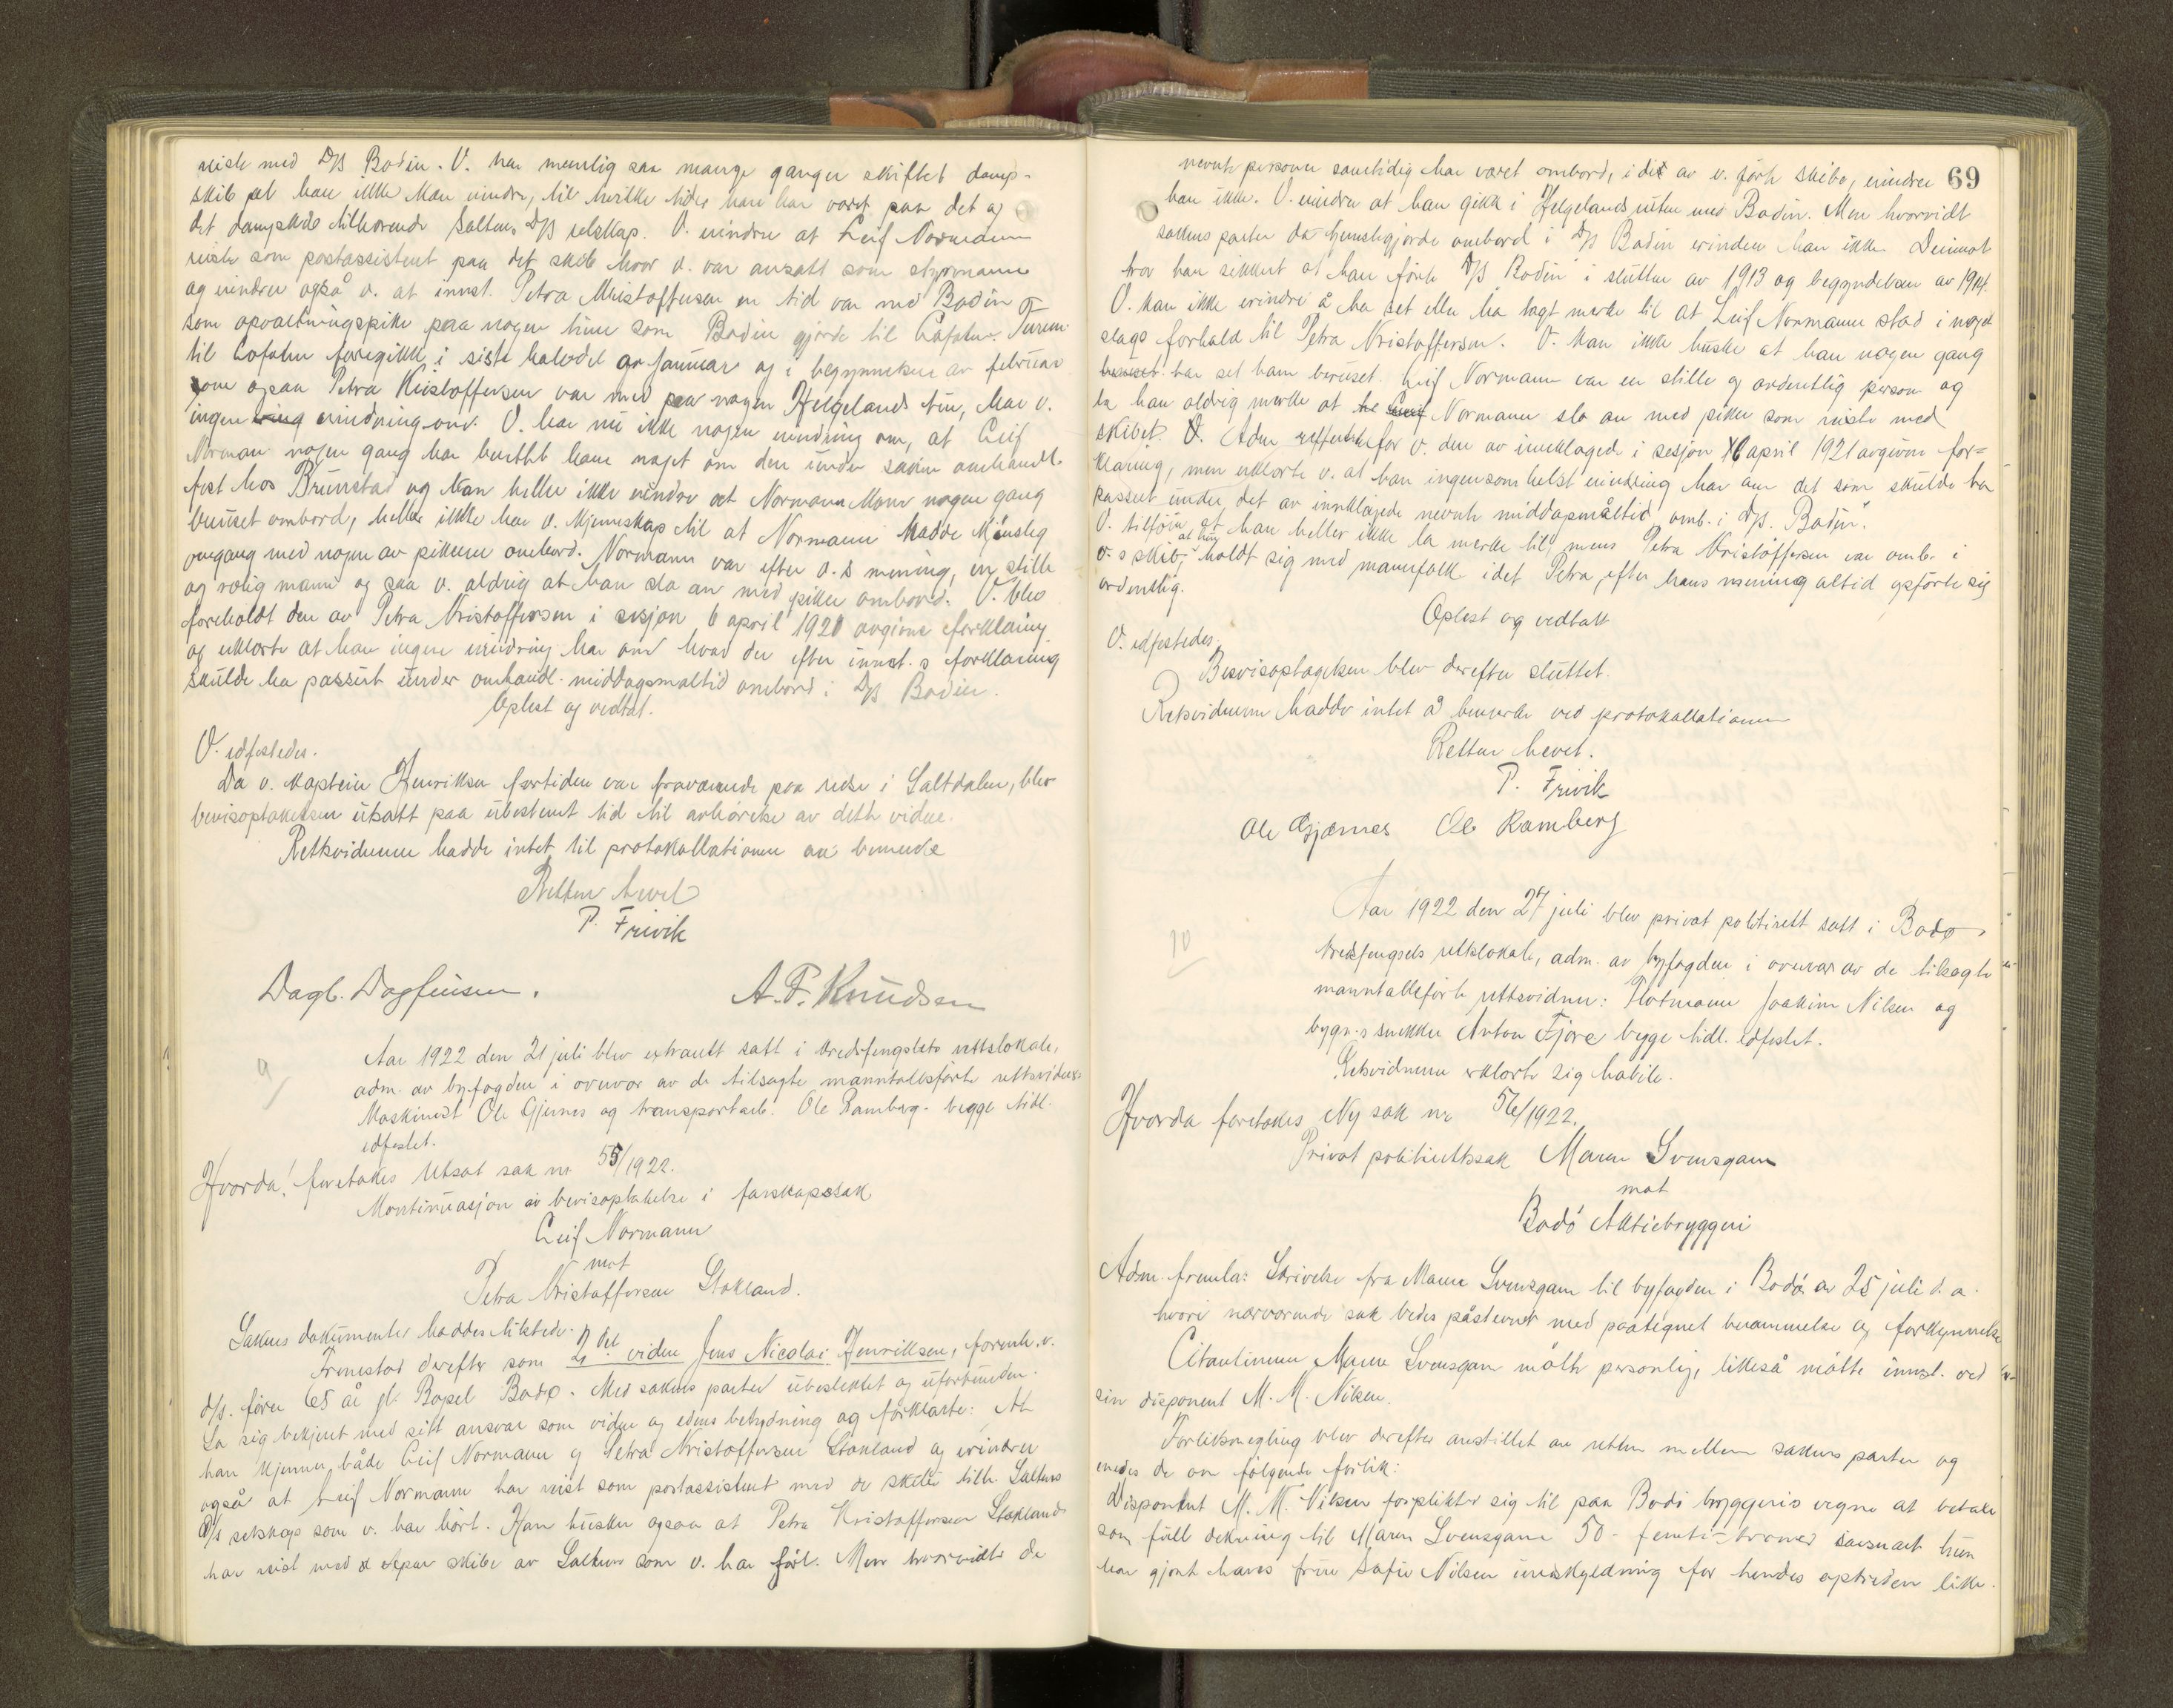 reiste med D/S Bodin. V. har nemlig saa mange ganger skiftet damp-
skib at han ikke kan erindre, til hvilke tider han har været paa det og
det dampskib tilhørende Saltens D/S selskap. V. erindrer at Leif Normann
reiste som postassistent paa det skib hvor v. var ansatt som styrmann
og erindrer også v. at innst. Petra Kristoffersen en tid var med Bodin
som opvartningspike paa nogen ture som Bodin gjorde til Lofoten. Turene
til Lofoten foregikk i siste halvdel av januar og i begynnelsen av februar
som ogsaa Petra Kristoffersen var med paa nogen Helgelands tur, har v.
ingen erindring om. V. har nu ikke nogen erindring om, at Leif
Normann nogen gang har berettet ham noget om den under saken omhandl.
fest hos Brunstad og kan heller ikke erindre at Normann kom nogen gang
beruset ombord, heller ikke har v. kjennskap til at Normann hadde kjønslig
omgang med nogen av pikerne ombord. Normann var efter v.s mening, en stille
og rolig mann og saa v. aldrig at han slo an med piker ombord. V. blev
foreholdt den av Petra Kristoffersen i sesjon 6 april 1921 avgivne forklaring
og erklærte at han ingen erindring har om hvad der efter innst.s forklaring
skulde ha passert under omhandl. middagsmaltid ombord i D/S Bodin.
Oplest og vedtat.
V. edfestedes.
Da v. kaptein Henriksen fortiden var fraværende paa reise i Saltdalen, blev
bevisoptakelsen utsatt paa ubestemt tid til avhørelse av dette vidne.
Rettsvidnene hadde intet til protokollationen aa bemerke
Retten hevet
P. Frivik
Dagb. Dagfinsen. A. F. Knudsen
9
Aar 1922 den 21 juli blev extrarett satt i kredsfengslets rettslokale,
adm. av byfogden i overvær av de tilsagte manntallsførte rettsvidner
Maskinist Ole Gjernes og transportarb. Ole Ramberg - begge tidl.
edfestet.
Hvorda! foretokes Utsat sak nr 55/1922.
Kontinuasjon av bevisoptakelse i farskapssak
Leif Normann
mot
Petra Kristoffersen Stokland.
Sakens dokumenter haddes tilstede.
Fremstod derefter som 2det vidne Jens Nicolai Henriksen, forenh. v.
d/s. fører 65 år gl. Bopel Bodø. Med sakens parter ubeslektet og uforbunden.
La sig bekjent med sitt ansvar som vidne og edens betydning og forklarte: At
han kjenner både Leif Normann og Petra Kristoffersen Stokland og erindrer
også at Leif Normann har reist som postassistent med de skiber tilh. Saltens
D/S selskap som v. har ført. Han husker ogsaa at Petra Kristoffersen Stokland
har reist med et par skibe av Saltens som v. har ført. Men hvorvidt de
69
nevnte personer samtidig har været ombord, i det av v. førte skibe, erindrer
han ikke. V. erindrer at han gikk i Helgelands ruten med Bodin. Men hvorvidt
sakens parter da tjenstegjorde ombord i D/S Bodin erindrer han ikke. Derimot
tror han sikkert at han førte D/S "Bodin" i slutten av 1913 og begyndelsen av 1914.
V. kan ikke erindre å ha set eller ha lagt merke til at Leif Normann stod i noget
slags forhold til Petra Kristoffersen. V. kan ikke huske at han nogen gang
beruset har set ham beruset. Leif Normann var en stille og ordentlig person og
la han aldrig merke at Normann slo an med piker som reiste med
skibet. Adm. refererte for v. den av innklagede i sesjon 6 april 1921 avgivne for-
klaring, men erklærte v. at han ingensomhelst erindring har om det som skulde ha
passert under det av innklagede nevnte middagsmåltid omb. i D/S. Bodin.
V. tilføier at han heller ikke la merke til, mens Petra Kristoffersen var omb. i
v.s skib, at hun holdt sig med mannfolk idet Petra efter hans mening altid opførte sig
ordentlig.
Oplest og vedtatt
V. edfestedes.
Bevisoptagelsen blev derefter sluttet.
Rettsvidnene hadde intet å bemerke ved protokollationen
Retten hevet.
P. Frivik
Ole Gjærnes Ole Ramberg
10
Aar 1922 den 27 juli blev privat politirett satt i Bodø
kredsfengsels rettslokale, adm. av byfogden i overvær av de tilsagte
manntallsførte rettsvidner: Flotmann Joakim Nilsen og
bygn.s snekker Anton Fjore begge tidl. edfestet.
Retsvidnene erklærte sig habile.
Hvorda foretokes Ny sak nr 56/1922.
Privat politirettssak Maren Svensgam
mot
Bodø Aktiebryggeri
Adm. fremla: Skrivelse fra Maren Svensgam til byfogden i Bodø av 25 juli d. a.
hvori nærværende sak bedes påstevnet med paategnet berammelse og forkynnelse
Citantinnen Maren Svensgam møtte personlig, likeså møtte innst. ved
sin disponent M. M. Nilsen.
Forliksmegling blev derefter anstillet av retten mellem sakens parter og
enedes de om følgende forlik:
Disponent M. M. Nilsen forplikter sig til paa Bodø bryggeris vegne at betale
som full dekning til Maren Svensgam 50 - femti - kroner saasnart hun
har gjort hans frue Sofie Nilsen undskyldning for hendes optræden like.